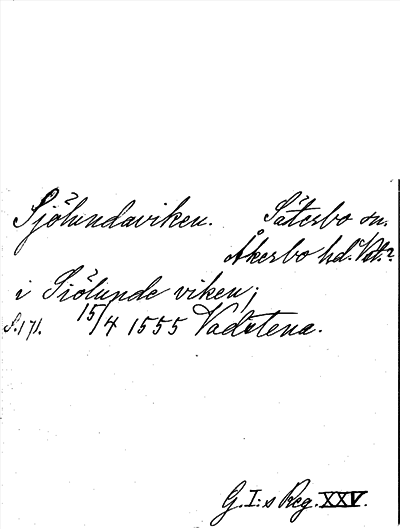 Sjölundaviken. Säterbo sn.
Åkerbo hd. Vstm.?
i Siölunde viken;
s. 171. 15/4 1555 Vadstena.
G. I:s Reg. XXV.